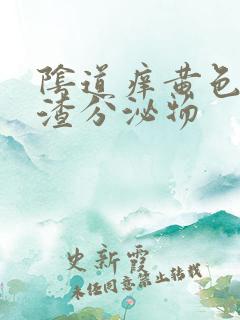 阴道痒黄色
渣分泌物
史新霞
未经同意禁止转载